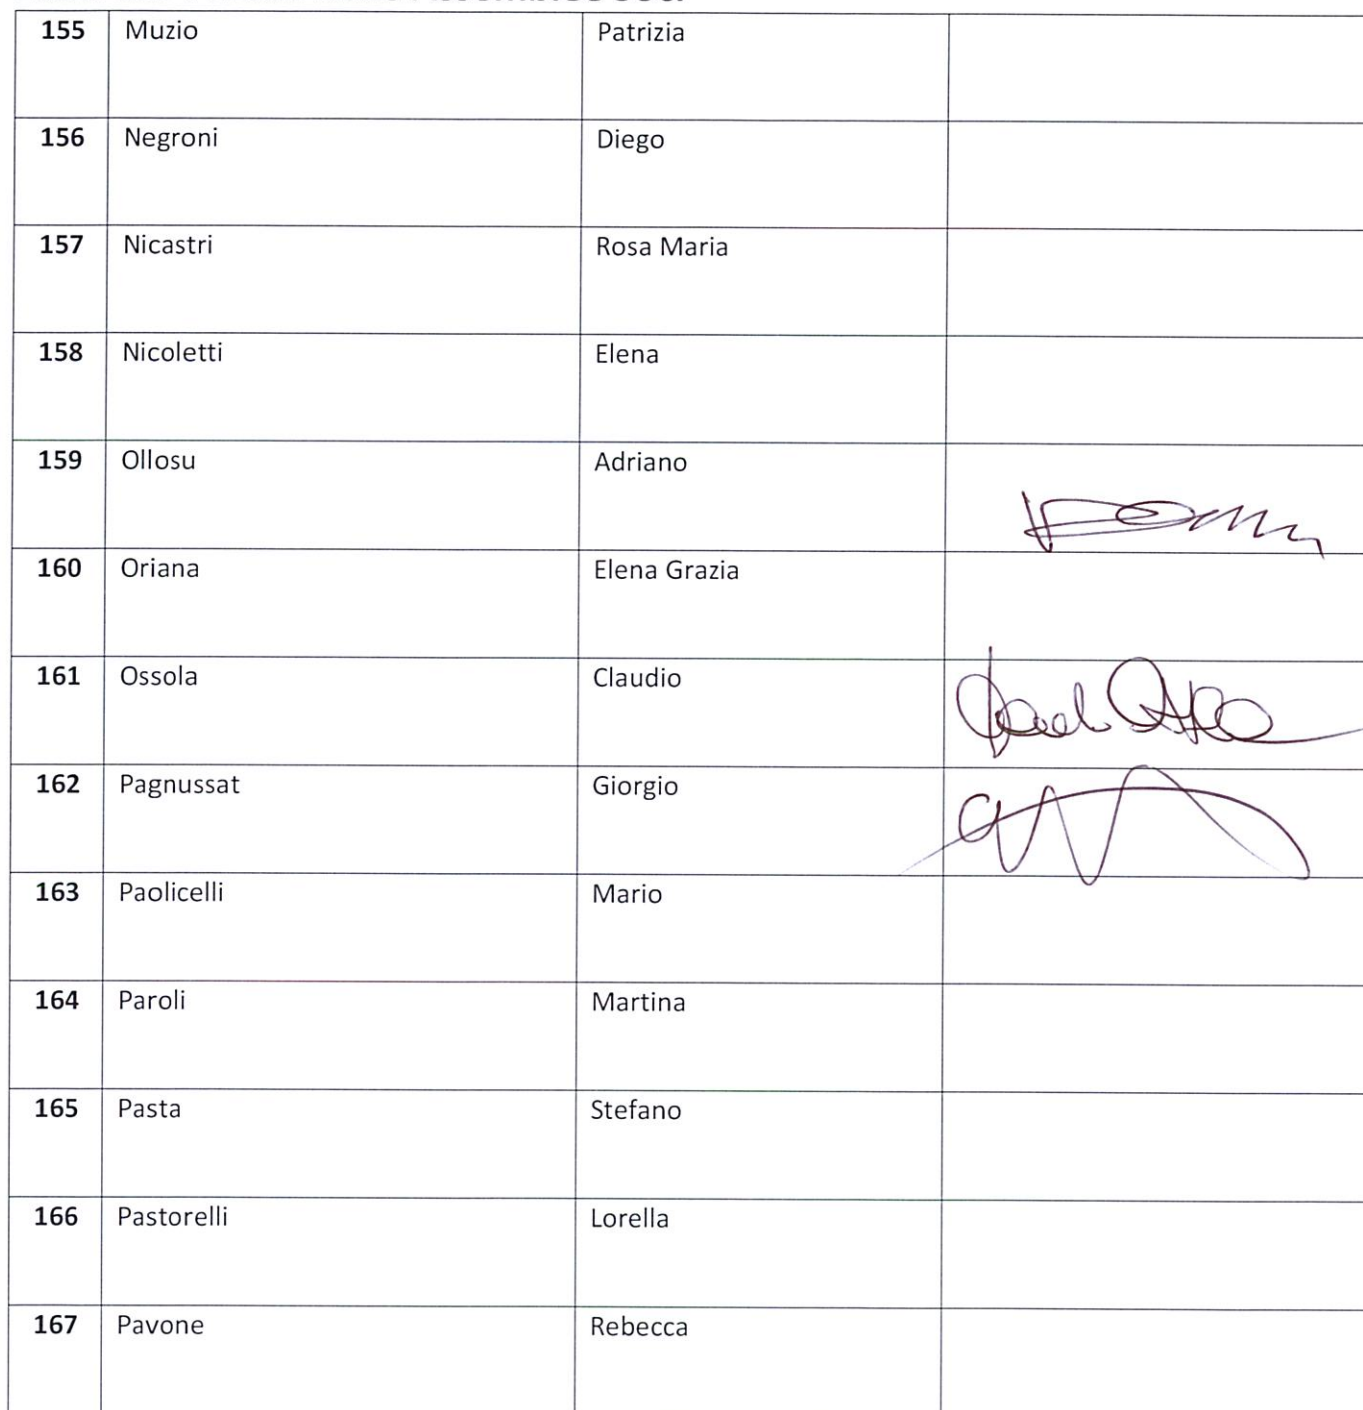 155 Muzio Patrizia
156 Negroni Diego
157 Nicastri Rosa Maria
158 Nicoletti Elena
159 Ollosu Adriano
160 Oriana Elena Grazia
161 Ossola Claudio
162 Pagnussat Giorgio
163 Paolicelli Mario
164 Paroli Martina
165 Pasta Stefano
166 Pastorelli Lorella
167 Pavone Rebecca